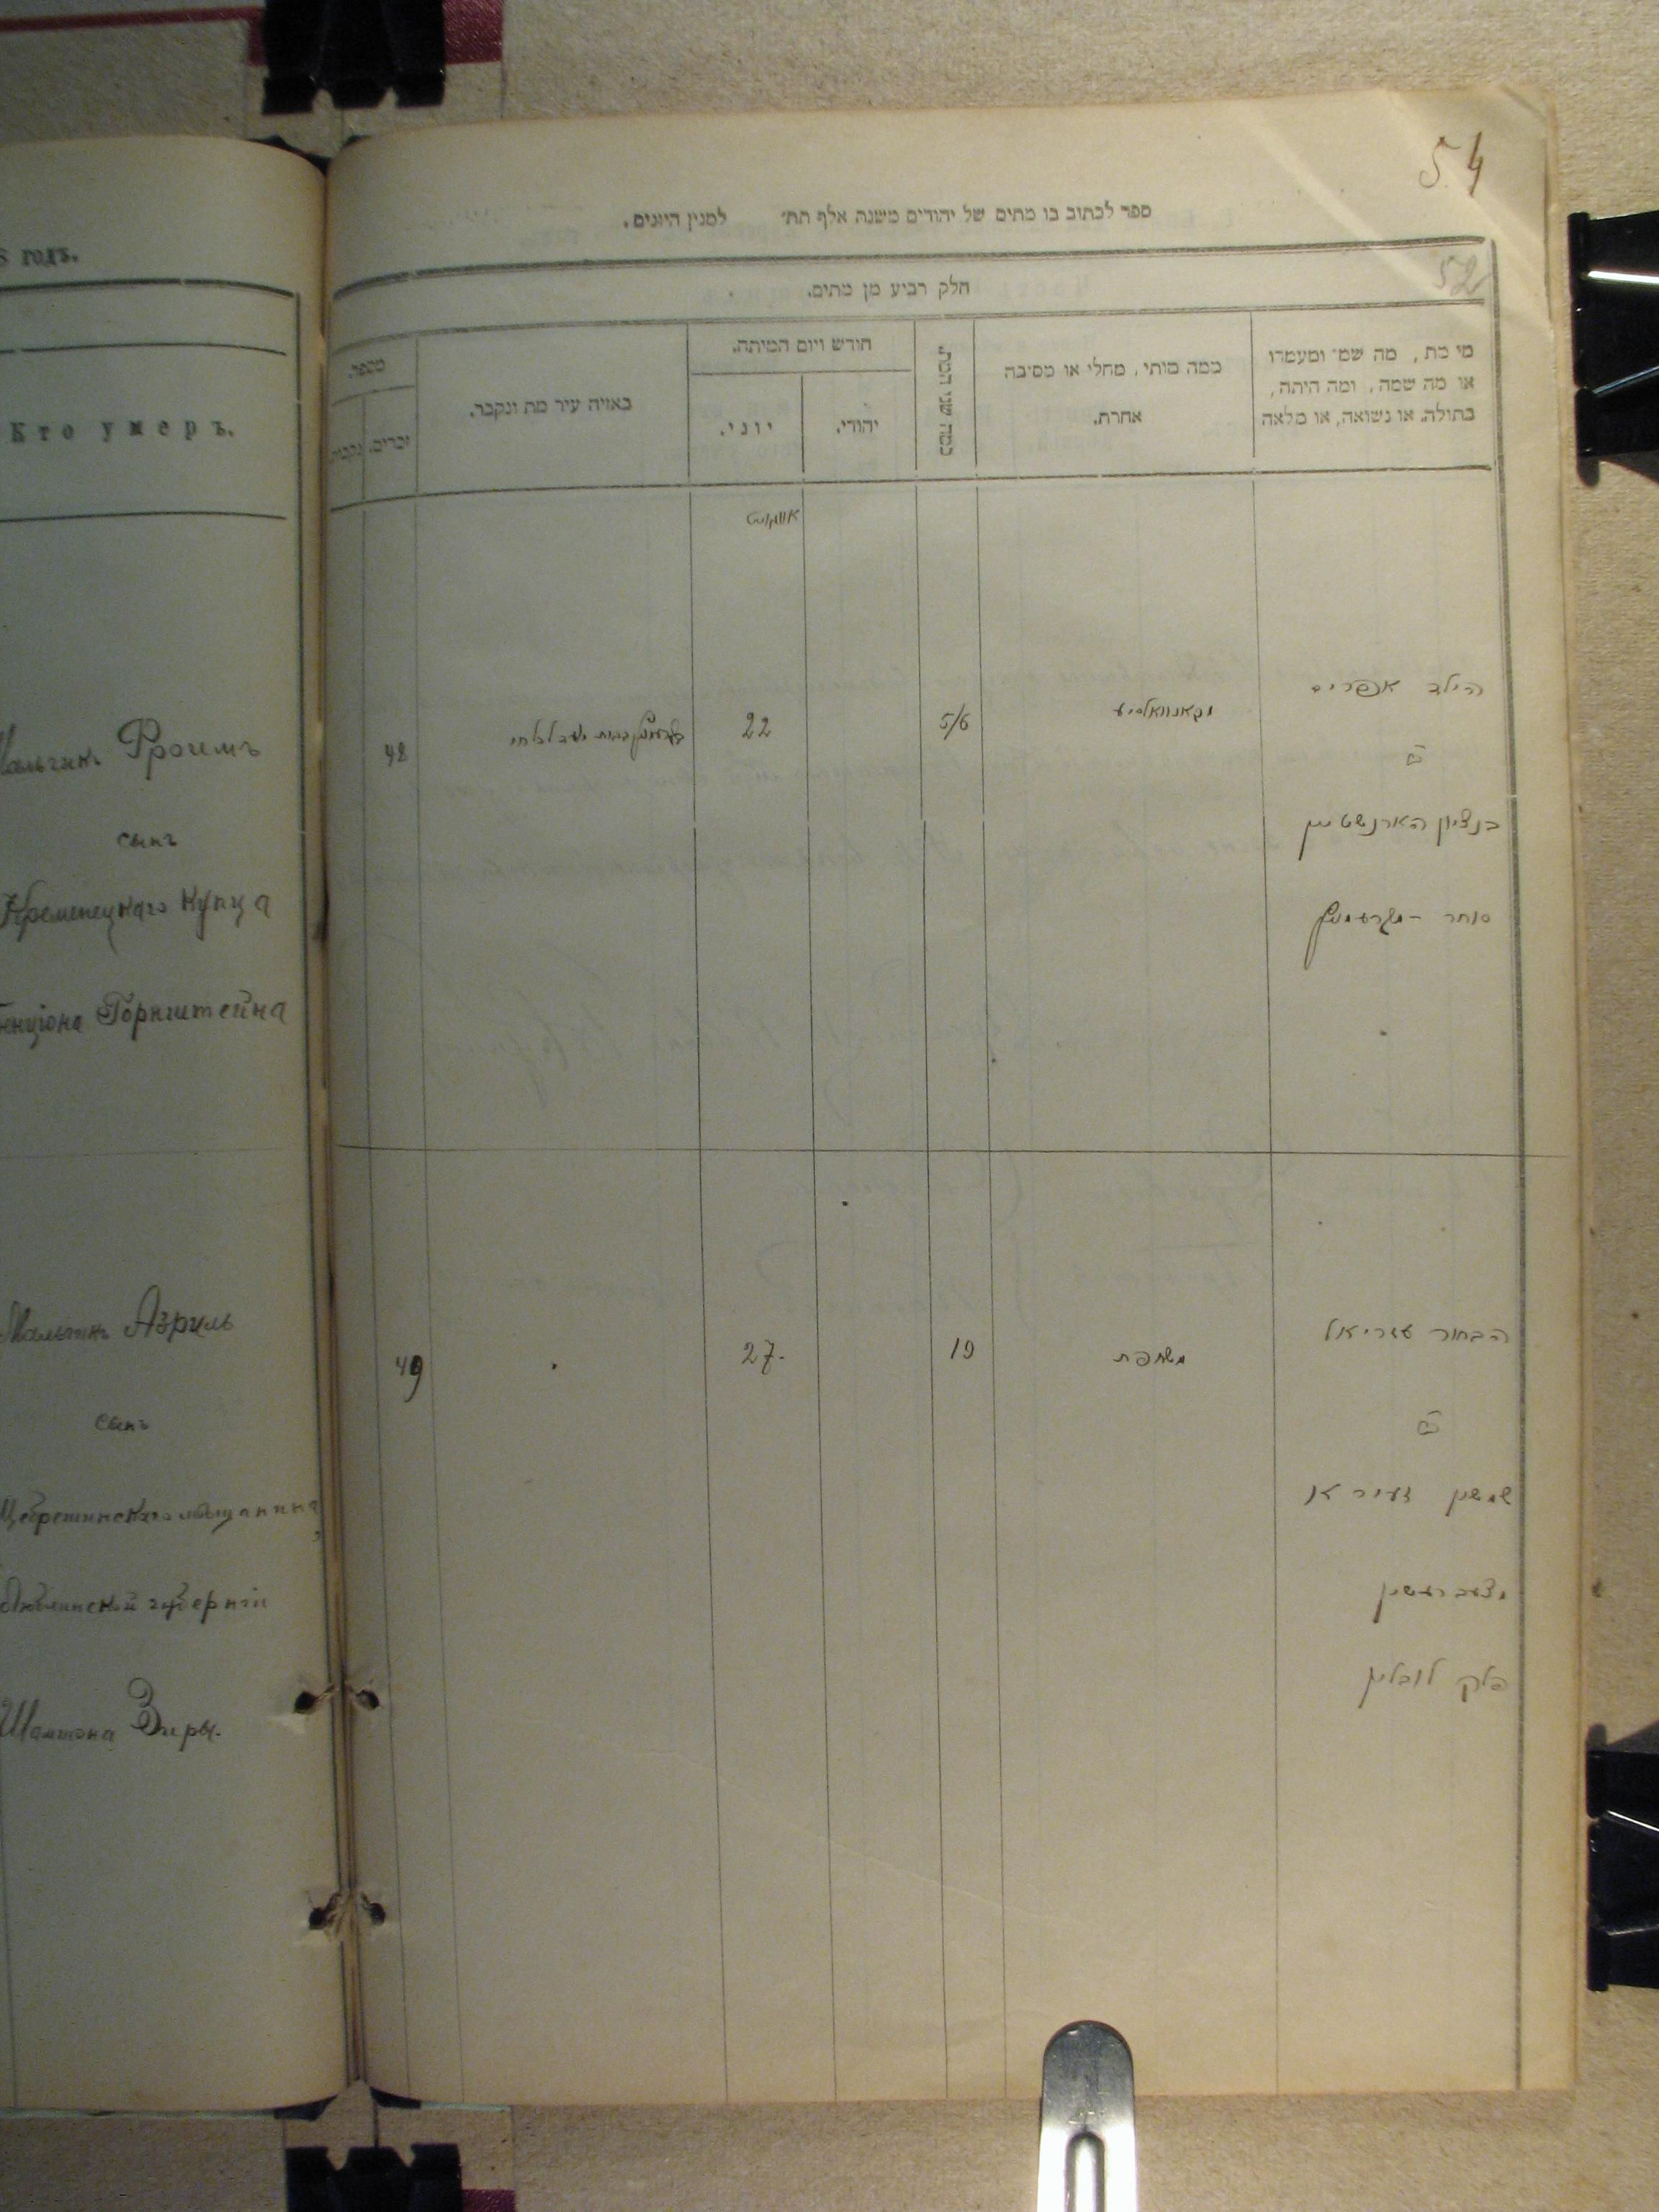 8 годъ.
Кто умеръ.
Мальчикъ Фроимъ
сынъ
Кременецкаго купца
Бенціона Горнштейна
Мальчикъ Азриль
сынъ
Щебрешинскаго мѣщанина
Люблинской губерніи
Шамшона Зиры.
54
ספר לכתוב בו מתים של יהודים משנה אלף תת״ למנין היונים.
52
חלק רביע מן מתים.
מי מת, מה שמו ומעמדו
או מה שמה, ומה היתה,
בתולה או נשואה, או מלאה
כמה מותי, מחלי או מסיבה
אחרת.
כמה שני המת.
חודש ויום המיתה.
יהודי.
יוני.
באיזה עיר מת ונקבר.
מספר.
זכרים.
נקבות.
אווגוסט
הילד אפרים
ב
בנציון הארנשטיין
סוחר מקרעמניץ
מקאנוואלסיע
5/6
22
48
הבחור עזריאל
ב
שמשון זעירא
מצעברעשין
פלך לובלין
משחפת
19
27.
49